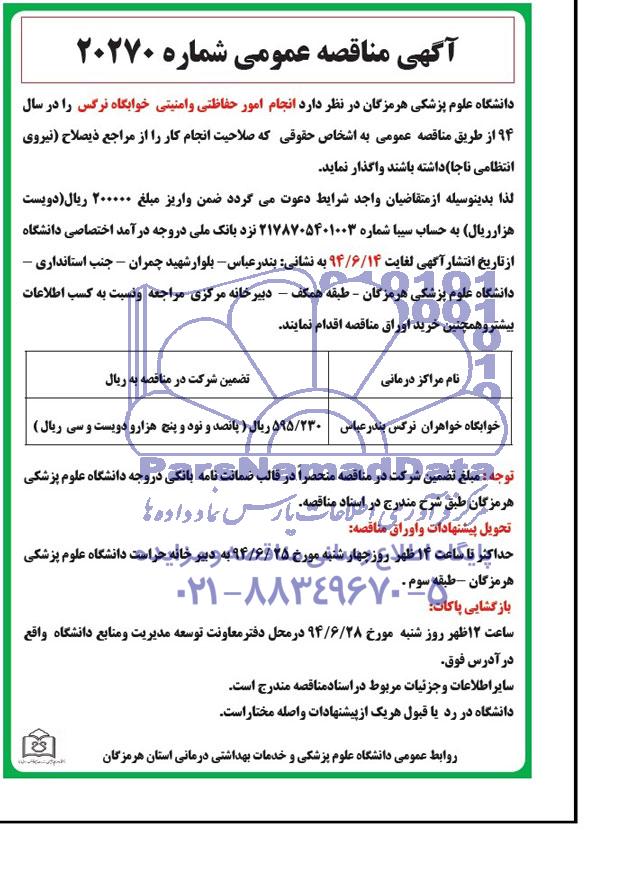 آگهی مناقصه عمومی شماره ۲۰۲۷۰
دانشگاه علوم پزشکی هرمزگان در نظر دارد انجام امور حفاظتی وامنیتی خوابگاه نرگس را در سال
۹۴ از طریق مناقصه عمومی به اشخاص حقوقی که صلاحیت انجام کار را از مراجع ذیصلاح (نیروی
انتظامی ناجا)داشته باشند واگذار نماید.
لذا بدینوسیله ازمتقاضیان واجد شرایط دعوت می گردد ضمن واریز مبلغ ۲۰۰۰۰۰ ریال(دویست
هزارریال) به حساب سیبا شماره ۲۱۷۸۷۰۵۴۰۱۰۰۳ نزد بانک ملی دروجه درآمد اختصاصی دانشگاه
ازتاریخ انتشارآگهی لغایت ۹۴/۶/۱۴ به نشانی: بندرعباس– بلوارشهید چمران – جنب استانداری –
دانشگاه علوم پزشکی هرمزگان - طبقه همکف – دبیرخانه مرکزی مراجعه ونسبت به کسب اطلاعات
بیشتروهمچنین خرید اوراق مناقصه اقدام نمایند.
نام مراکز درمانی
تضمین شرکت در مناقصه به ریال
خوابگاه خواهران نرگس بندرعباس
۵۹۵/۲۳۰ ریال ( پانصد و نود و پنج هزارو دویست و سی ریال )
توجه : مبلغ تضمین شرکت در مناقصه منحصراً در قالب ضمانت نامه بانکی دروجه دانشگاه علوم پزشکی
ParsNamadData
هرمزگان طبق شرح مندرج در اسناد مناقصه.
مرکز فرآوری اطلاعات پارس نماد داده ها
تحویل پیشنهادات واوراق مناقصه:
حداکثر تا ساعت ۱۴ظهر روزچهار شنبه مورخ ۹۴/۶/۲۵ به دبیر خانه حراست دانشگاه علوم پزشکی
پایگاه اطلاع رسانی مناقصه و مزایده
هرمزگان –طبقه سوم .
۰۲۱-۸۸۳۴۹۶۷۰-۵
بازگشایی پاکات:
ساعت ۱۲ظهر روز شنبه مورخ ۹۴/۶/۲۸ درمحل دفترمعاونت توسعه مدیریت ومنابع دانشگاه واقع
درآدرس فوق.
سایراطلاعات وجزئیات مربوط دراسنادمناقصه مندرج است.
دانشگاه در رد یا قبول هریک ازپیشنهادات واصله مختاراست.
روابط عمومی دانشگاه علوم پزشکی و خدمات بهداشتی درمانی استان هرمزگان